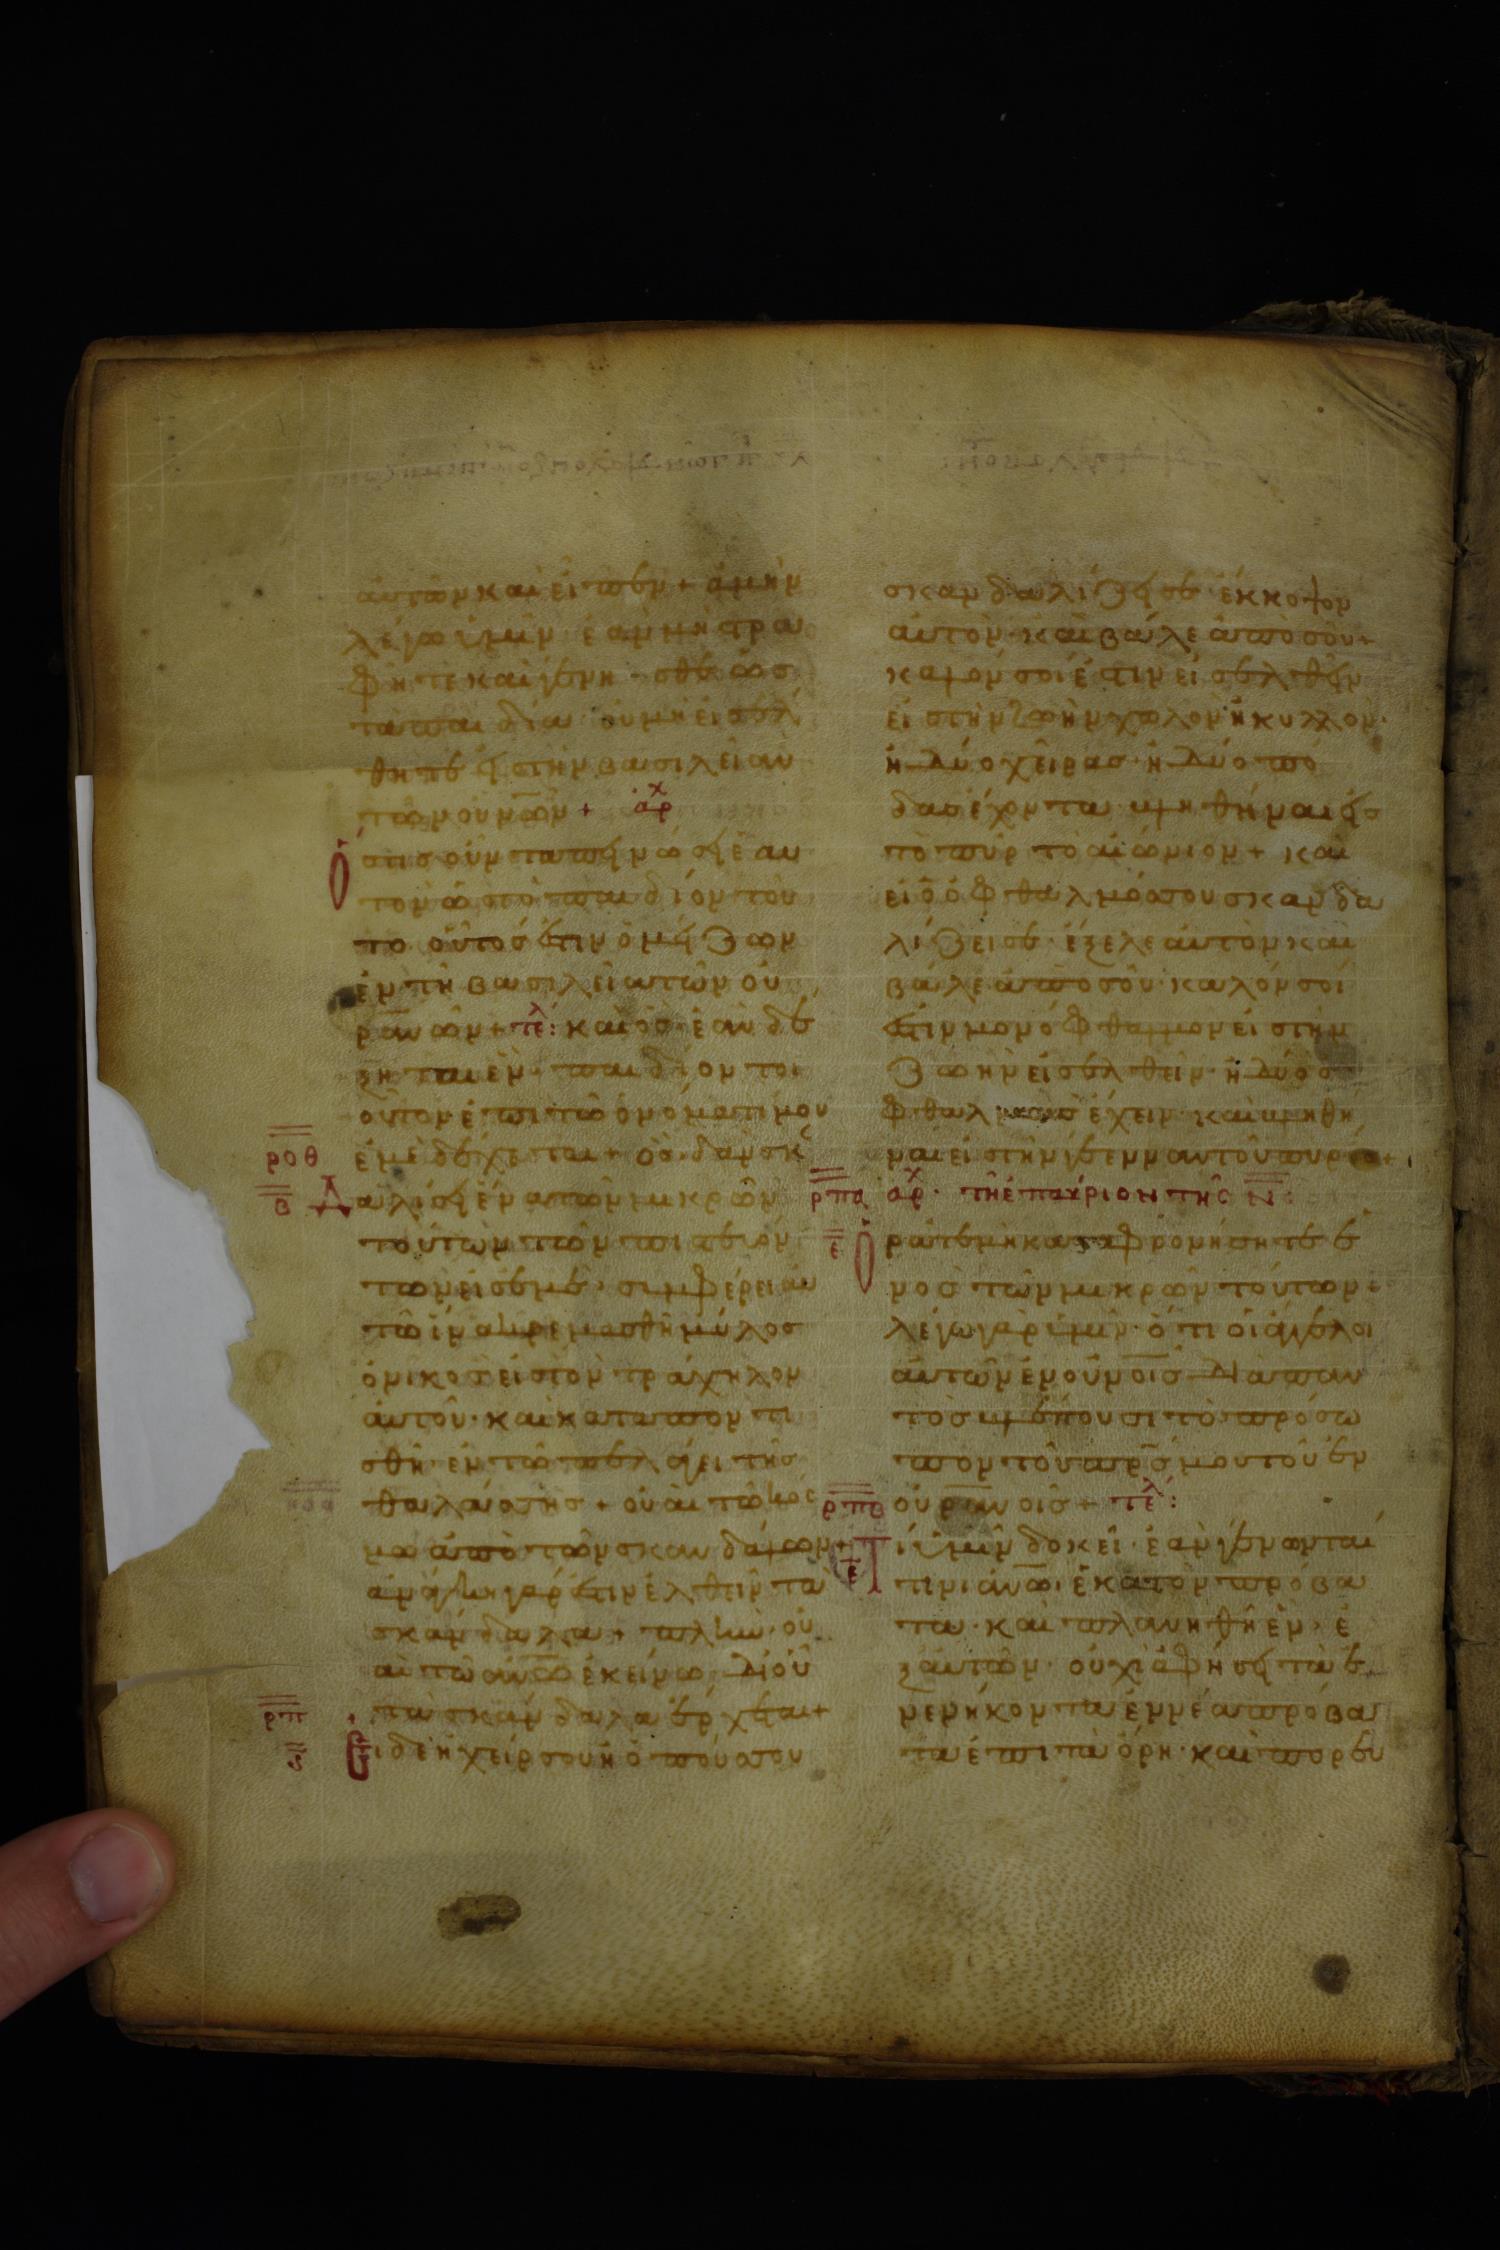 αὐτῶν καὶ εἶπεν + ἀμὴν
λέγω ὑμῖν· ἐὰν μὴ στρα
φῆτε καὶ γένησθε ὡς
τὰ παιδία· οὐ μὴ εἰσέλ
θητε εἰς τὴν βασιλείαν
τῶν οὐνῶν + ἀρχ
Ὅστις οὖν ταπεινώσει ἑαυ
τὸν ὡς τὸ παιδίον τοῦ
το οὗτός ἐστιν ὁ μείζων
ἐν τῇ βασιλεία τῶν οὐ
ρανῶν + τέλ: καὶ ὃς ἐὰν δέ
ξηται ἓν παιδίον τοι
οῦτον ἐπὶ τῶ ὀνόματί μου
ροθ ἐμὲ δέχεται + ὃς δ᾽ ἂν σκ
β Δαλίσει ἕνα τῶν μικρῶν
τούτων τῶν πιστευόν
των εἰς ἐμέ· συμφέρει αὐ
τῶ ἵνα κρεμασθῆ μύλος
ὀνικὸς εἰς τὸν τράχηλον
αὐτοῦ· καὶ καταποντι
σθῆ ἐν τῶ πελάγει τῆς
θαλάσσης + οὐαὶ τῶ κόσ
μω ἀπὸ τῶν σκανδάλων +
ἀνάγκη γάρ ἐστιν ἐλθεῖν τὰ
σκάνδαλα + πλὴν οὐ
αὶ τῶ ἀνω ἐκείνω δι᾽ οὗ
ρπ τὸ σκάνδαλον ἔρχεται +
Εἰ δὲ ἡ χείρ σου ἢ ὁ πούς σου
σκανδαλίζει σε· ἔκκοψον
αὐτὸν· καὶ βάλε ἀπὸ σοῦ +
καλόν σοι ἐστιν εἰσελθεῖν
εἰς τὴν ζωὴν χωλὸν ἢ κυλλόν·
ἢ δύο χεῖρας ἢ δύο πό
δας ἔχοντα βληθῆναι εἰς
τὸ πῦρ τὸ αἰώνιον + καὶ
εἰ ὁ ὀφθαλμός σου σκανδα
λίζει σε· ἔξελε αὐτὸν καὶ
βάλε ἀπὸ σοῦ· καλόν σοί
ἐστιν μονόφθαλμον εἰς τὴν
ζωὴν εἰσελθεῖν· ἢ δύο ὀ
φθαλμοὺς ἔχειν· καὶ βληθῆ
ναι εἰς τὴν γέενναν τοῦ πυρός +
ρπα ἀρχ· τῆ ἐπαύριον τῆς Ν:
ε Ὁρᾶτε μὴ καταφρονήσητε ἑ
νὸς τῶν μικρῶν τούτων·
λέγω γὰρ ὑμῖν· ὅτι οἱ ἄγγελοι
αὐτῶν ἐν οὐνοις διαπαν
τὸς βλέπουσι τὸ πρόσω
πον τοῦ πρς μου τοῦ ἐν
ρπβ οὐρανοῖς + τέλ:
ε Τί ὑμῖν δοκεῖ· ἐὰν γένωνταί
τινι ἀνω· ἑκατὸν πρόβα
τα· καὶ πλανηθῆ ἓν ἐ
ξ αὐτῶν· οὐχὶ ἀφήσει τὰ ἐ
νενήκοντα ἐννέα πρόβα
τα ἐπὶ τὰ ὄρη· καὶ πορευ